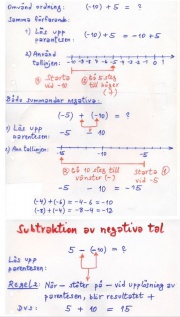 Omvänd ordning: (-10) + 5 = ?
Samma förfarande:
1) Lös upp parentesen: (-10) + 5 = -10 + 5
2) Använd tallinjen:
① Starta vid -10
② Gå 5 steg till höger (+)
Båda summander negativa:
(-5) + (-10) = ?
1) Lös upp parentesen:
-5 - 10
2) Anv. tallinjen:
-15 -10 -5
② Gå 10 steg till vänster (-)
① Starta vid -5
-5 - 10 = -15
(-4) + (-6) = -4 - 6 = -10
(-8) + (-4) = -8 - 4 = -12
Subtraktion av negativa tal
5 - (-10) = ?
Lös upp parentesen:
Regel 2: När - stöter på - vid upplösning av
parentesen, blir resultatet +
Dvs: 5 + 10 = 15